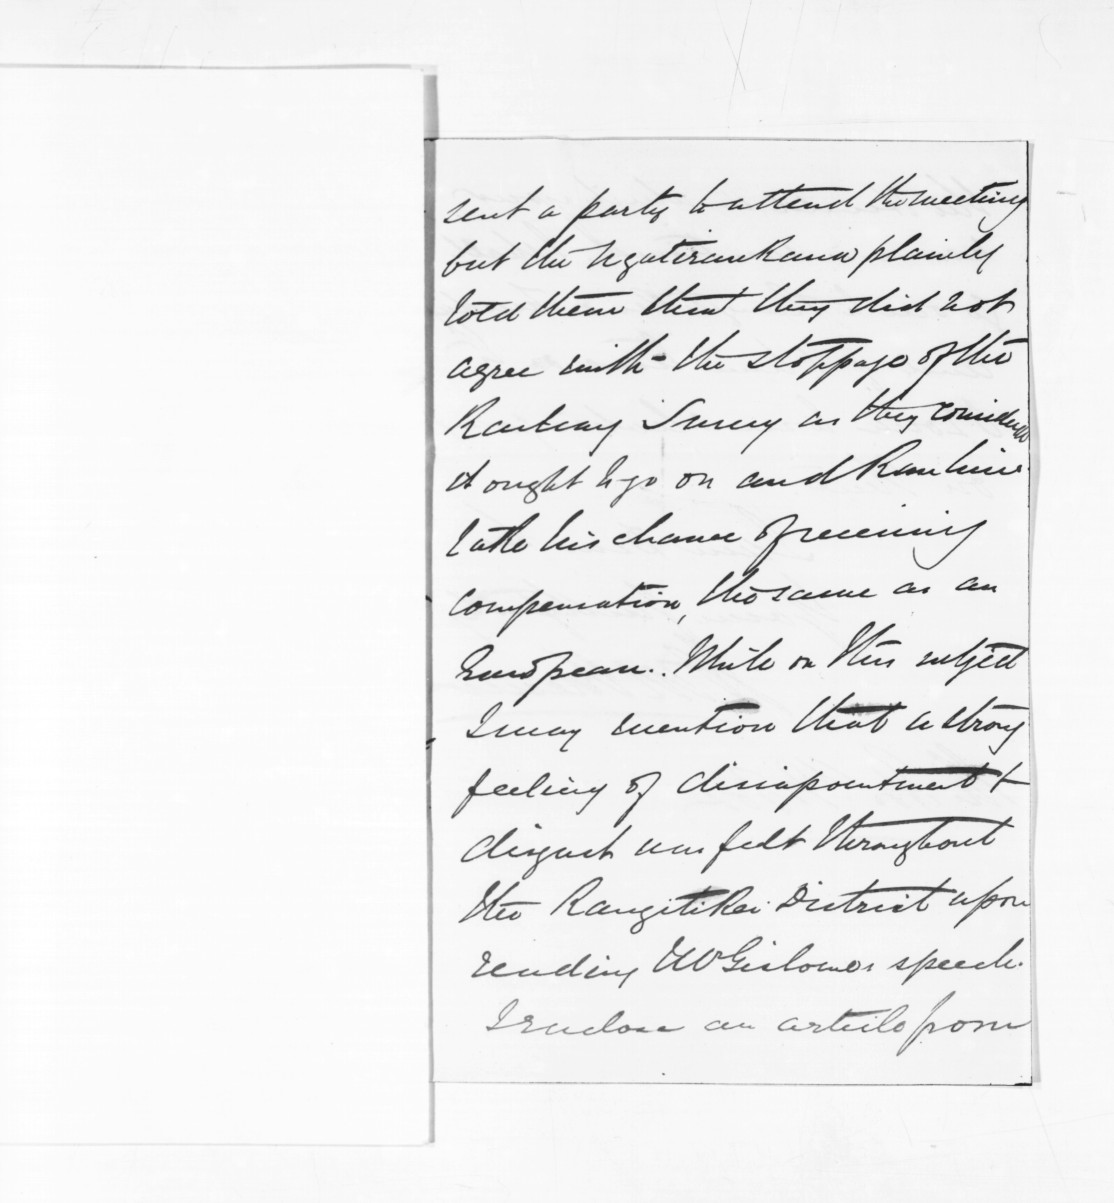 sent a party to attend the meeting
but the Ngatiraukawa plainly
told them that they did not
agree with the stoppage of the
Railway Survey as they considered
it ought to go on and
take his chance of receiving
compensation, the same as an
European. While on this subject
I may mention that a strong
feeling of disappointment &
disgust was felt throughout
the Rangitikei District upon
reading Mr Gisborne's speech.
I enclose an article from